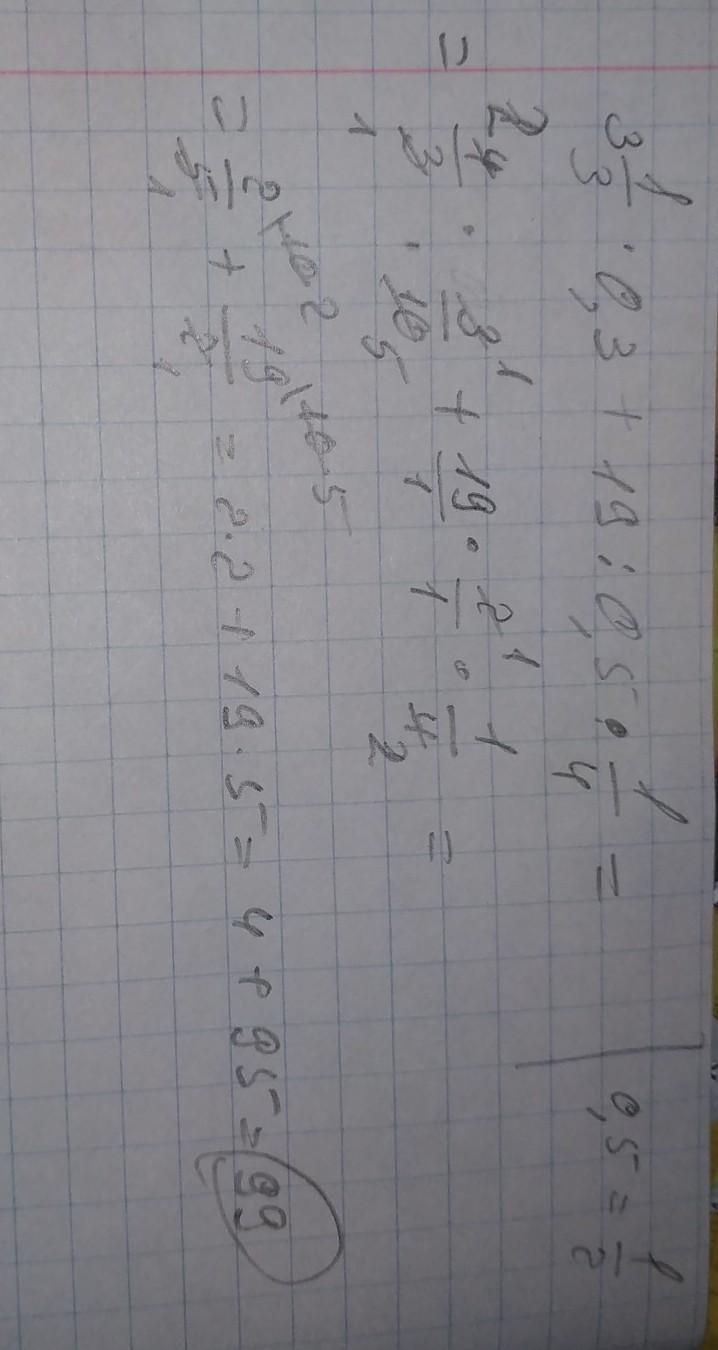 3 1/3 · 0,3 + 19 : 0,5 · 1/4 = | 0,5 = 1/2
= 4/3 · 3/10 + 19/1 · 2/1 · 1/4 =
= 2/5 + 19/2 = 2·2 + 19·5 = 4 + 95 = 99